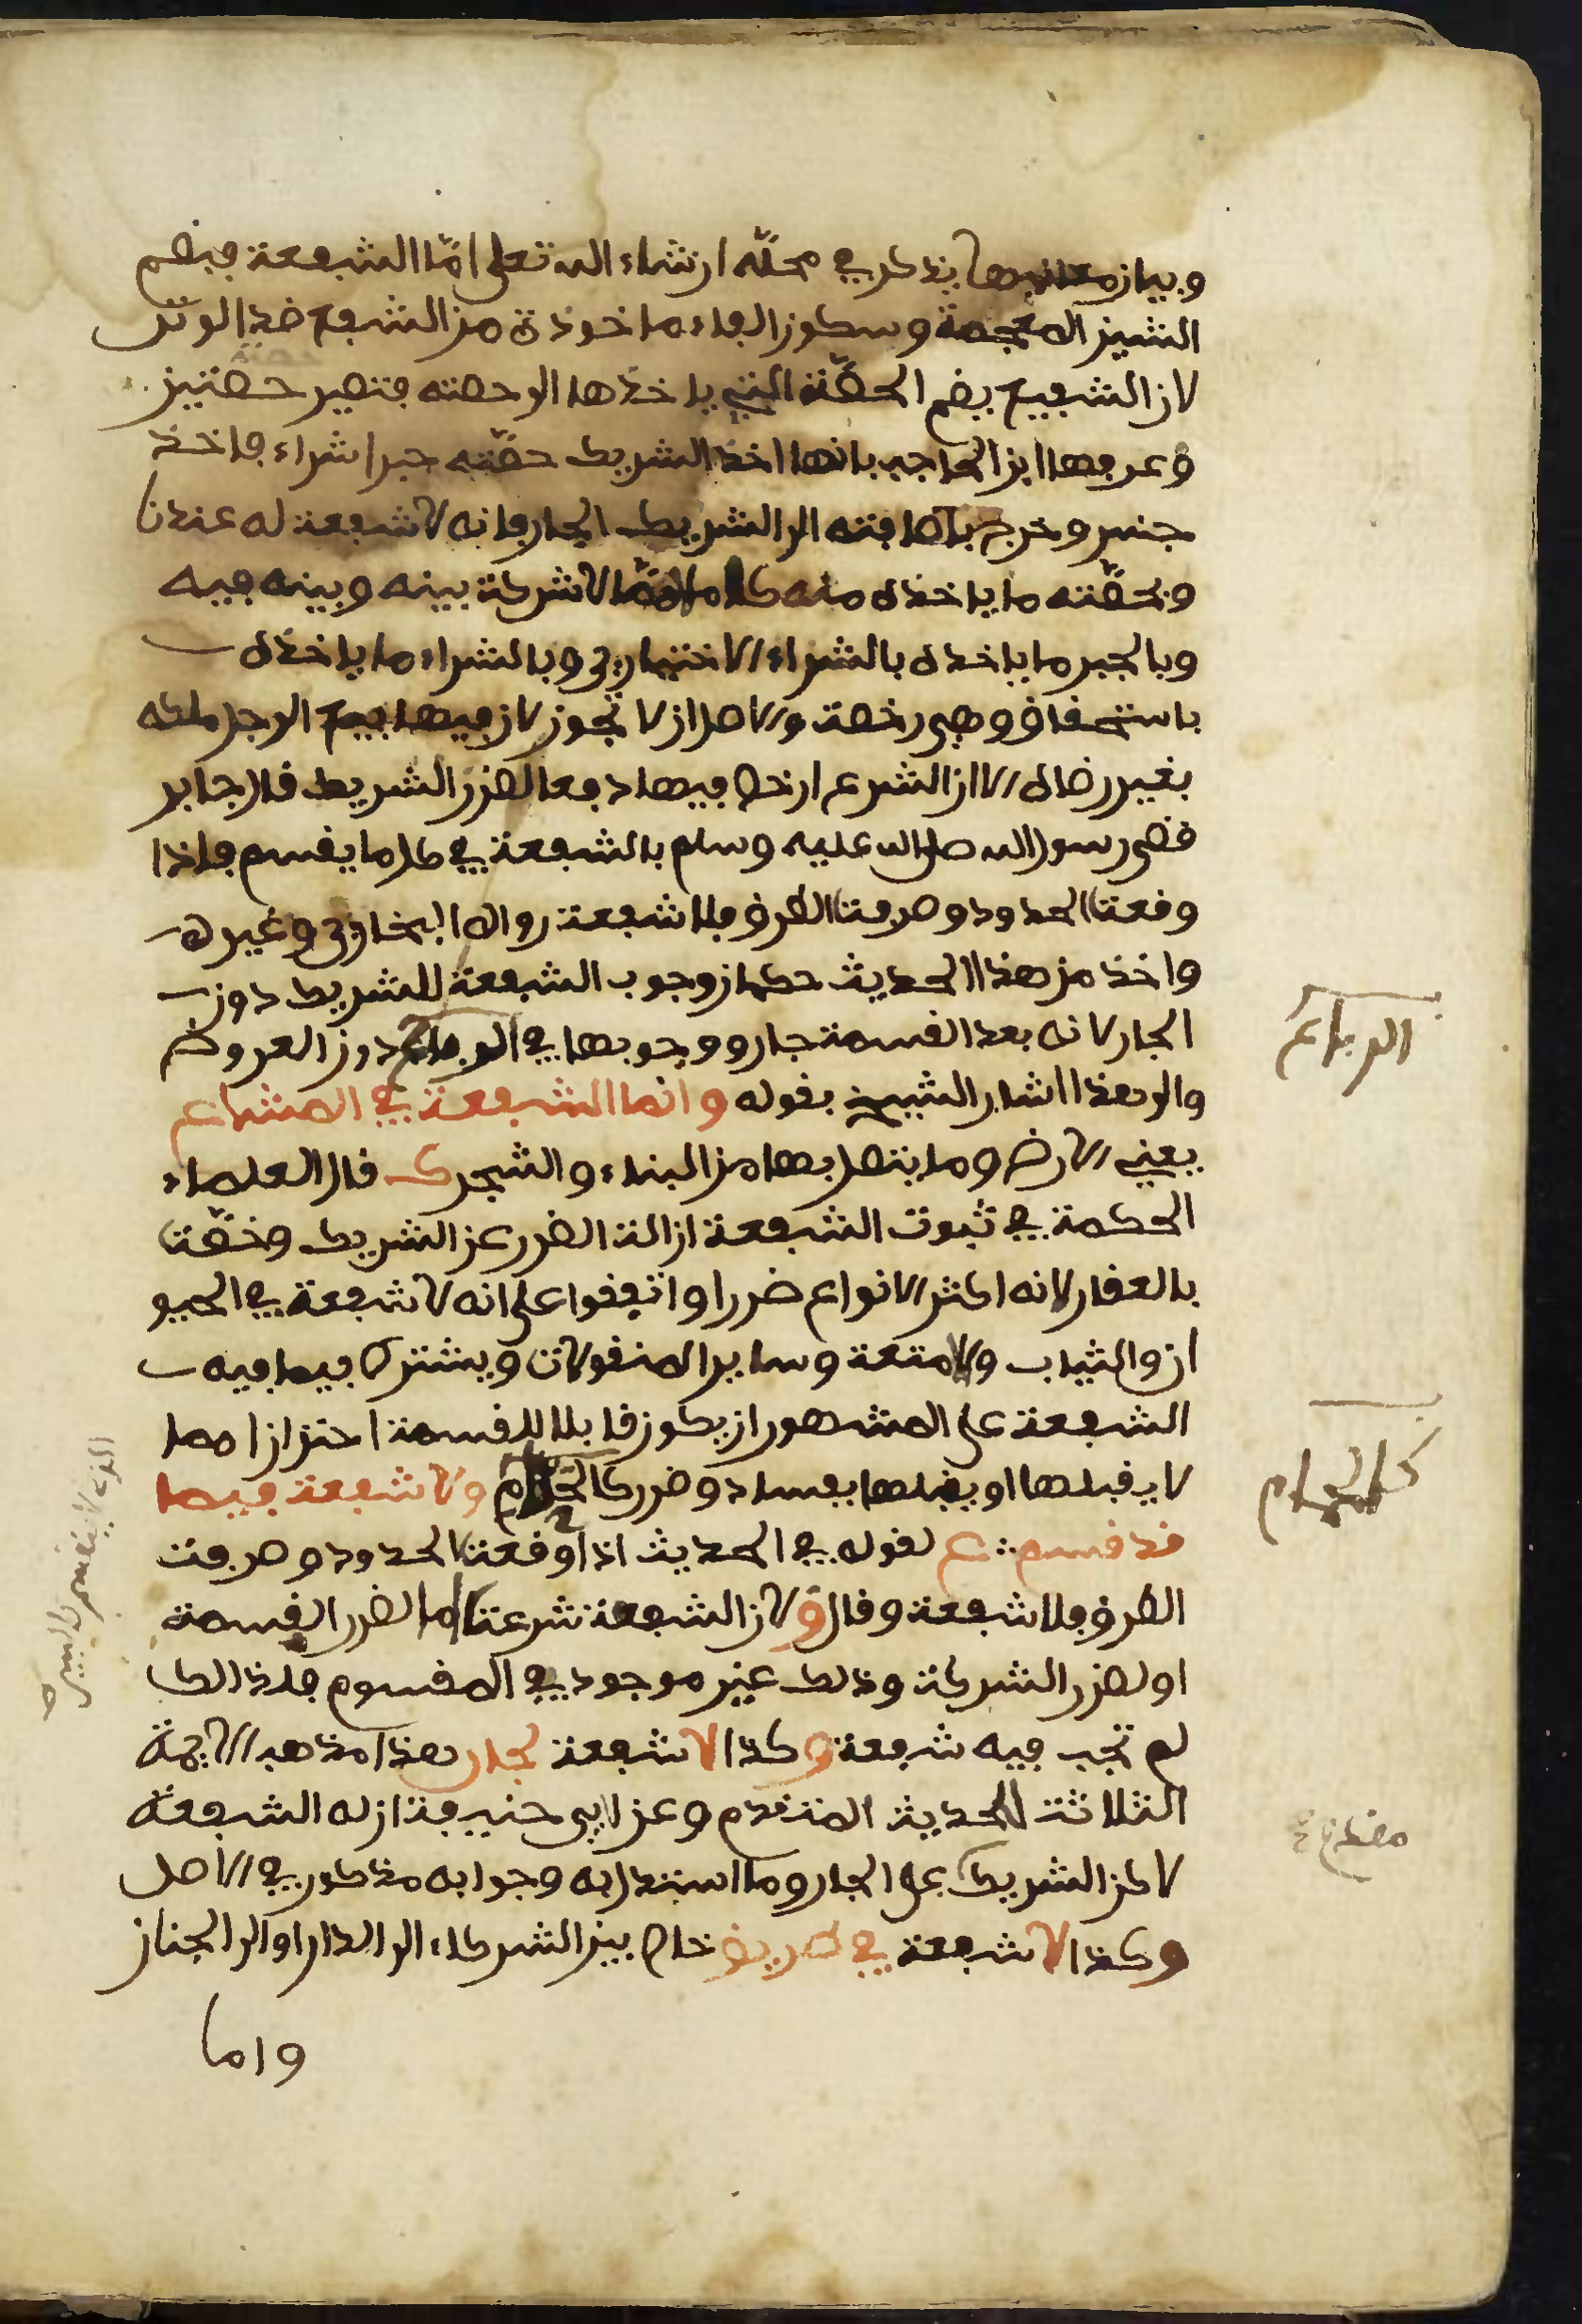 وبيان معانيها يذكر في محله ان شاء الله تعلى امّا الشفعة فبضم
الشين المعجمة وسكون الفاء ماخوذة من الشفع ضد الوتر
لان الشفيع يضم الحصّة التي ياخذها الى حصته فتصير حصتين
وعرفها ابن الحاجب بانها اخذ الشريك حصّته جبرا شراء فاخذ
جنس وخرج باضافته الى الشريك الجار فانه لا شفعة له عندنا
وبحصّته ما ياخذه منه كاملا ممّا لا شركة بينه وبينه فيه
وبالجبر ما ياخذه بالشراء الاختياري وبالشراء ما ياخذه
باستحقاق وهي رخصة والاصل ان لا تجوز لان فيها بيع الرجل ملكه
بغير رضاه الا ان الشرع ارخص فيها دفعا لضرر الشريك قال جابر
قضى رسول الله صلى الله عليه وسلم بالشفعة في كل ما يقسم فاذا
وقعت الحدود وصرفت الطرق فلا شفعة رواه البخاري وغيره
واخذ من هذا الحديث حكمان وجوب الشفعة للشريك دون
الجار لانه بعد القسمة جار ووجوبها في الرباع دون العروض
والى هذا اشار الشيخ بقوله وانما الشفعة في المشاع
يعني الارض وما يتصل بها من البناء والشجر ك قال العلماء
الحكمة في ثبوت الشفعة ازالة الضرر عن الشريك وخصّت
بالعقار لانه اكثر الانواع ضررا واتفقوا على انه لا شفعة في الحيو
ان والثياب والامتعة وساير المنقولات ويشترط فيما فيه
الشفعة على المشهور ان يكون قابلا للقسمة احترازا مما
لا يقبلها او يقبلها بفساد وضرر كالحمّام ولا شفعة فيما
قد قسم ع لقوله في الحديث اذا وقعت الحدود وصرفت
الطرق فلا شفعة وقال ق لان الشفعة شرعت اما لضرر القسمة
او لضرر الشركة وذلك غير موجود في المقسوم فلذالك
لم تجب فيه شفعة وكذا لا شفعة لجار هذا مذهب الايمة
الثلاثة للحديث المتقدم وعن ابي حنيفة ان له الشفعة
لاكن الشريك على الجار وما استدل به وجوابه مذكور في الاصل
وكذا لا شفعة في طريق خاص بين الشركاء الى الدار او الى الجنان
واما
الرباع
كالحمام